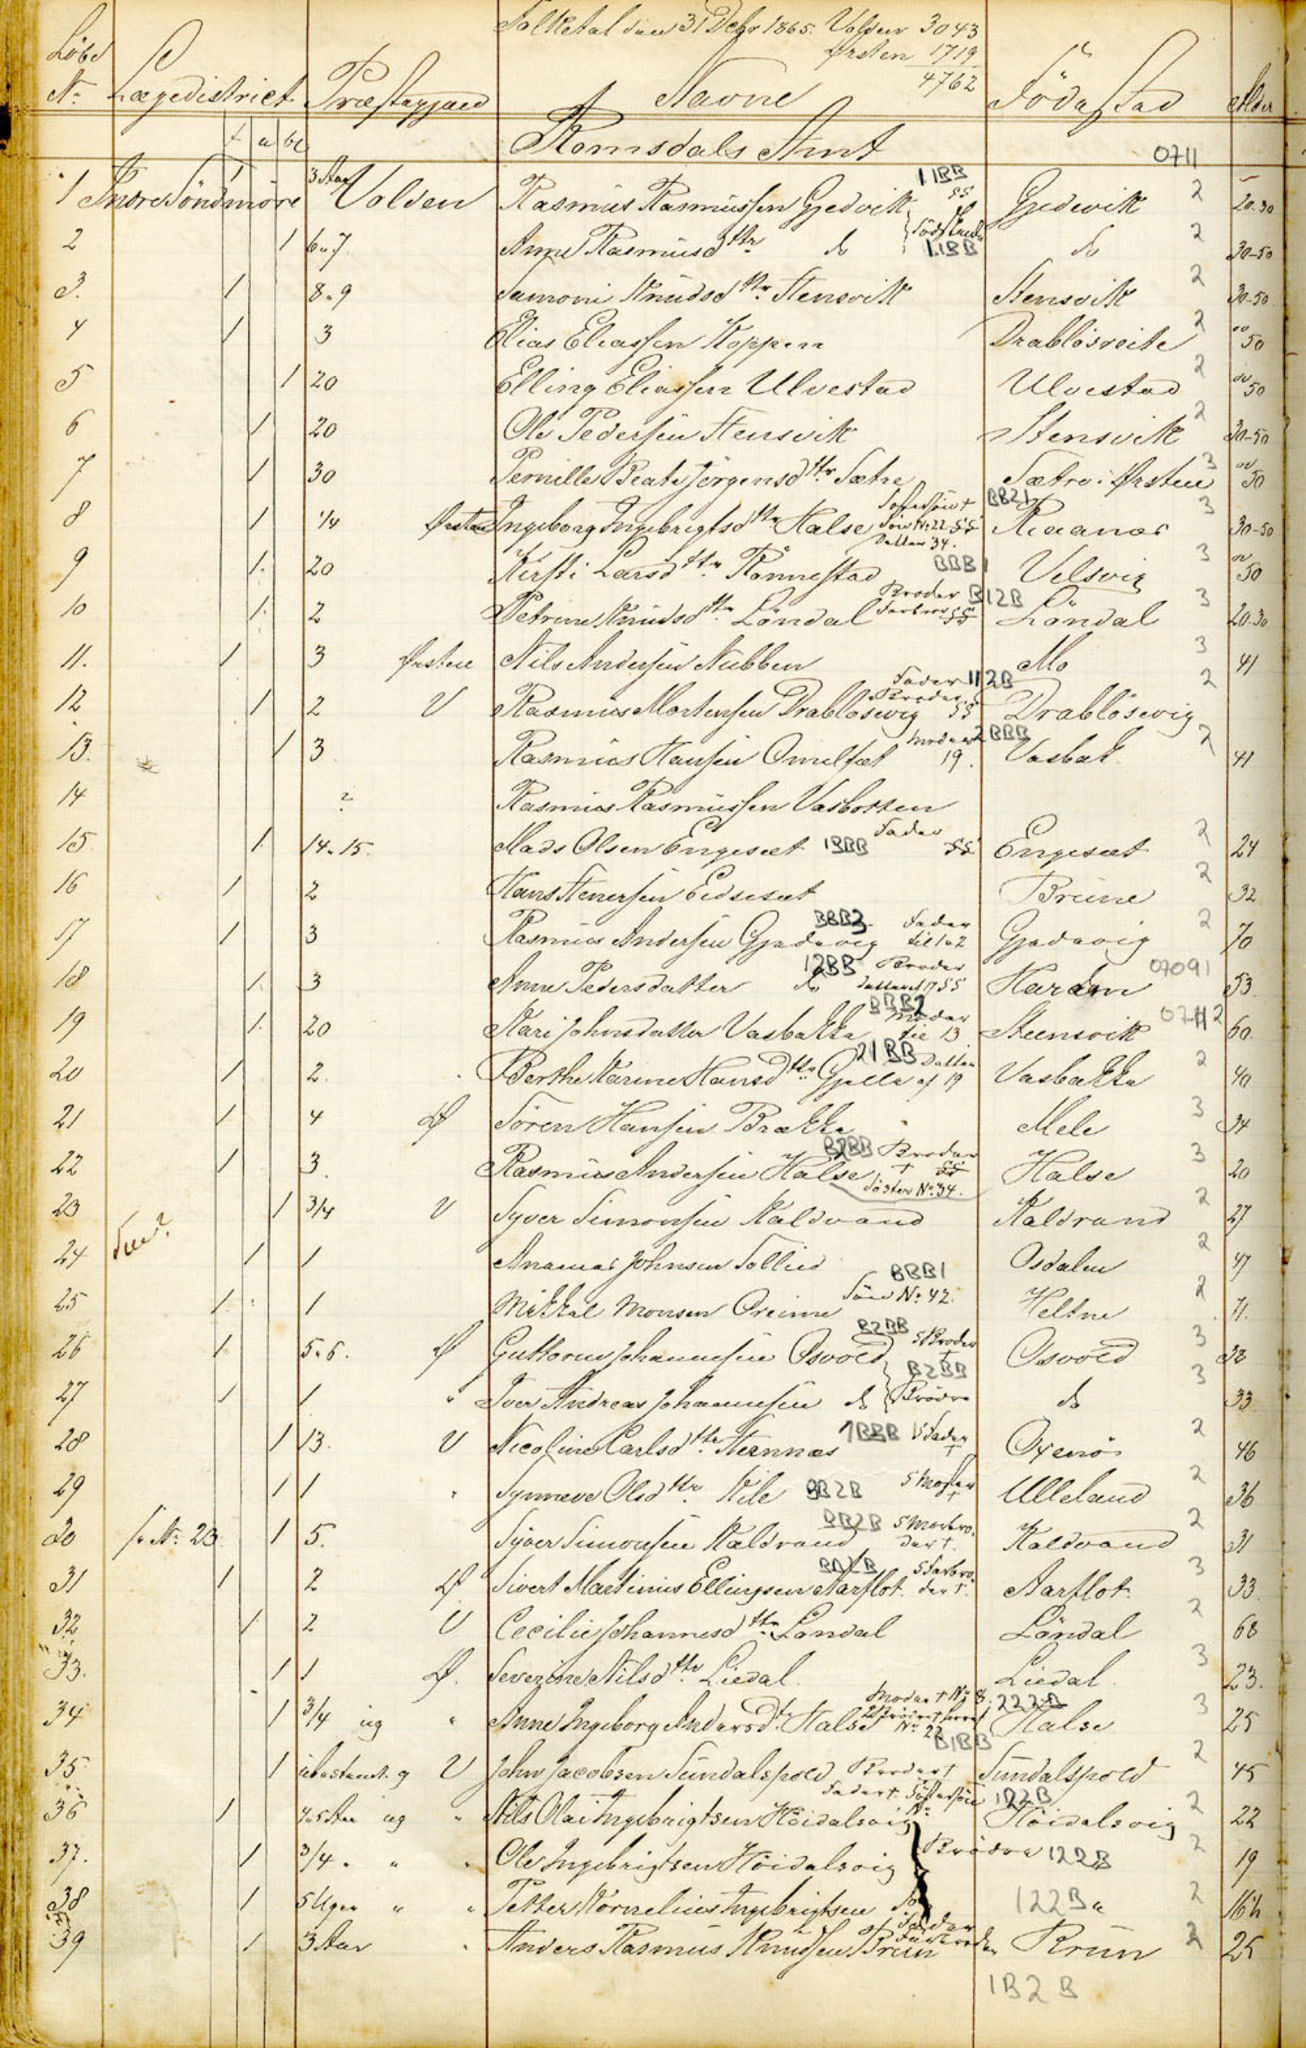 Folketal den 31 Debr 1865. Volden 3043
Ørsten 1719
4762
Löbe No Lægedistrict Præstegjæld Navne Födestad Alder
t a bl
Romsdals Amt 0711
1 Indre Söndmöre 1 3 Aar Volden Rasmus Rasmussen Gjedvik 11BB §§ Gjedevik 2 20-30
2 1 6 a 7 Anne Rasmusdtr do 1.1BB do 2 30-50
3. 1 8 a 9 Knudsdtr Stensvik Stensvik 2 30-50
4 1 3 Elias Eliassen Koppen Drablösreite 2 ov 50
5 1 20 Elling Eliassen Ulvestad Ulvestad 2 ov 50
6 1 20 Ole Pedersen Stensvik Stensvik 2 30-50
7 1 30 Pernille Beate Jörgensdtr Sætre Sætre i Örsten 3 ov 50
8 1 1/4 Ørsten Ingeborg Ingebrigtsdtr Halse Sön No 22 §§ Datter 34. BB21 3 30-50
9 1 20 Kirsti Larsdtr Rönnestad BBB1 Velsvig 3 ov 50
10 1 2 Petrine Knudsdtr Löndal Broder Farbror §§ B12B Löndal 3 20-30
11. 1 3 Ørsten Nils Andersen Nubben Mo 3 41
12 1 2 V Rasmus Mortensen Drablösevig Fader Broder §§ 112B Drablösevig 2
13. 1 3 Rasmus Hansen Omelfæt Moder 19. 2BBB Vasbak 2 41
14 2 Rasmus Rasmussen Vasbotten
15. 1 14 a 15. Mads Olsen Engeset 1BBB Fader §§ Engeset 2 24
16 1 2 Hans Stenersen Eidseset Brune 2 32
17 1 3 Rasmus Andersen Gjedevig BBB2 Fader til 1 a 2 Gjedevig 2 70
18 1 3 Anne Pedersdatter do 12BB Broder datter 17 §§ Haram 07091 53
19 1 20 Kari Johnsdatter Vasbakke BBB2 Moder til 13 Steensvik 07112 60
20 1 2. Berthe Karine Hansdtr Gjelle 21BB Datter af 19 Vasbakke 2 40
21 1 4 Ø Sören Hansen Brække Mele 3 34
22 1 3. Rasmus Andersen Halse B2BB Broder † §§ Söster No 34. Halse 3 20
23 1 3/4 V Syver Simonsen Kaldvand Kaldvand 2 27
24 1 1 Johnsen Osdalen 2 47
25 1 1 Mikkal Monsen BBB1 Sön No 42. Heltne 2 71.
26 1 5 a 6. Ø Guttorm Johannesen Osvold B2BB § Broder † Osvold 3 32
27 1 1 " Iver Andreas Johannesen do B2BB Brödre do 3 33
28 1 13. V Nicoline Carlsdtr Sternnæs 1BBB § Fader † Oxenö 2 46
29 1 1 " Synneve Olsdtr Kile BB2B § Moster † Ulleland 2 36
30 fr No 23 1 5. Syver Simonsen Kaldvand BB2B § Morbroder †. Kaldvand 2 31
31 1 2 Ø. Sivert Martinus Ellingsen Aarflot. § Farbroder †. Aarflot. 3 33
32 1 2 V Cecilie Johannesdtr Löndal Löndal 2 68
33. 1 1 Ø. Severine Nilsdtr Liedal. Liedal. 3 23.
34 1 3/4 ug " Anne Ingeborg Andersdtr Halse Moder † No 8. No 22 222B Halse 3 25
35 1 ubestemt. g V John Jacobsen Sundalspold Broder † B1BB Sundalspold 2 45
36 1 4 a 5 Aar ug " Nils Olai Ingebrigtsen Höidalsvig Fader †. Söstersön 122B Höidalsvig 2 22
37. 1 3/4 " " " Ole Ingebrigtsen Höidalsvig Brödre 122B 2 19
38 1 5 Uger " " Petter Kornelius Ingebrigtsen do 122B 2 16½
39 1 3 Aar " Anders Rasmus Knudsen Brun Brun 2 25
1B2B